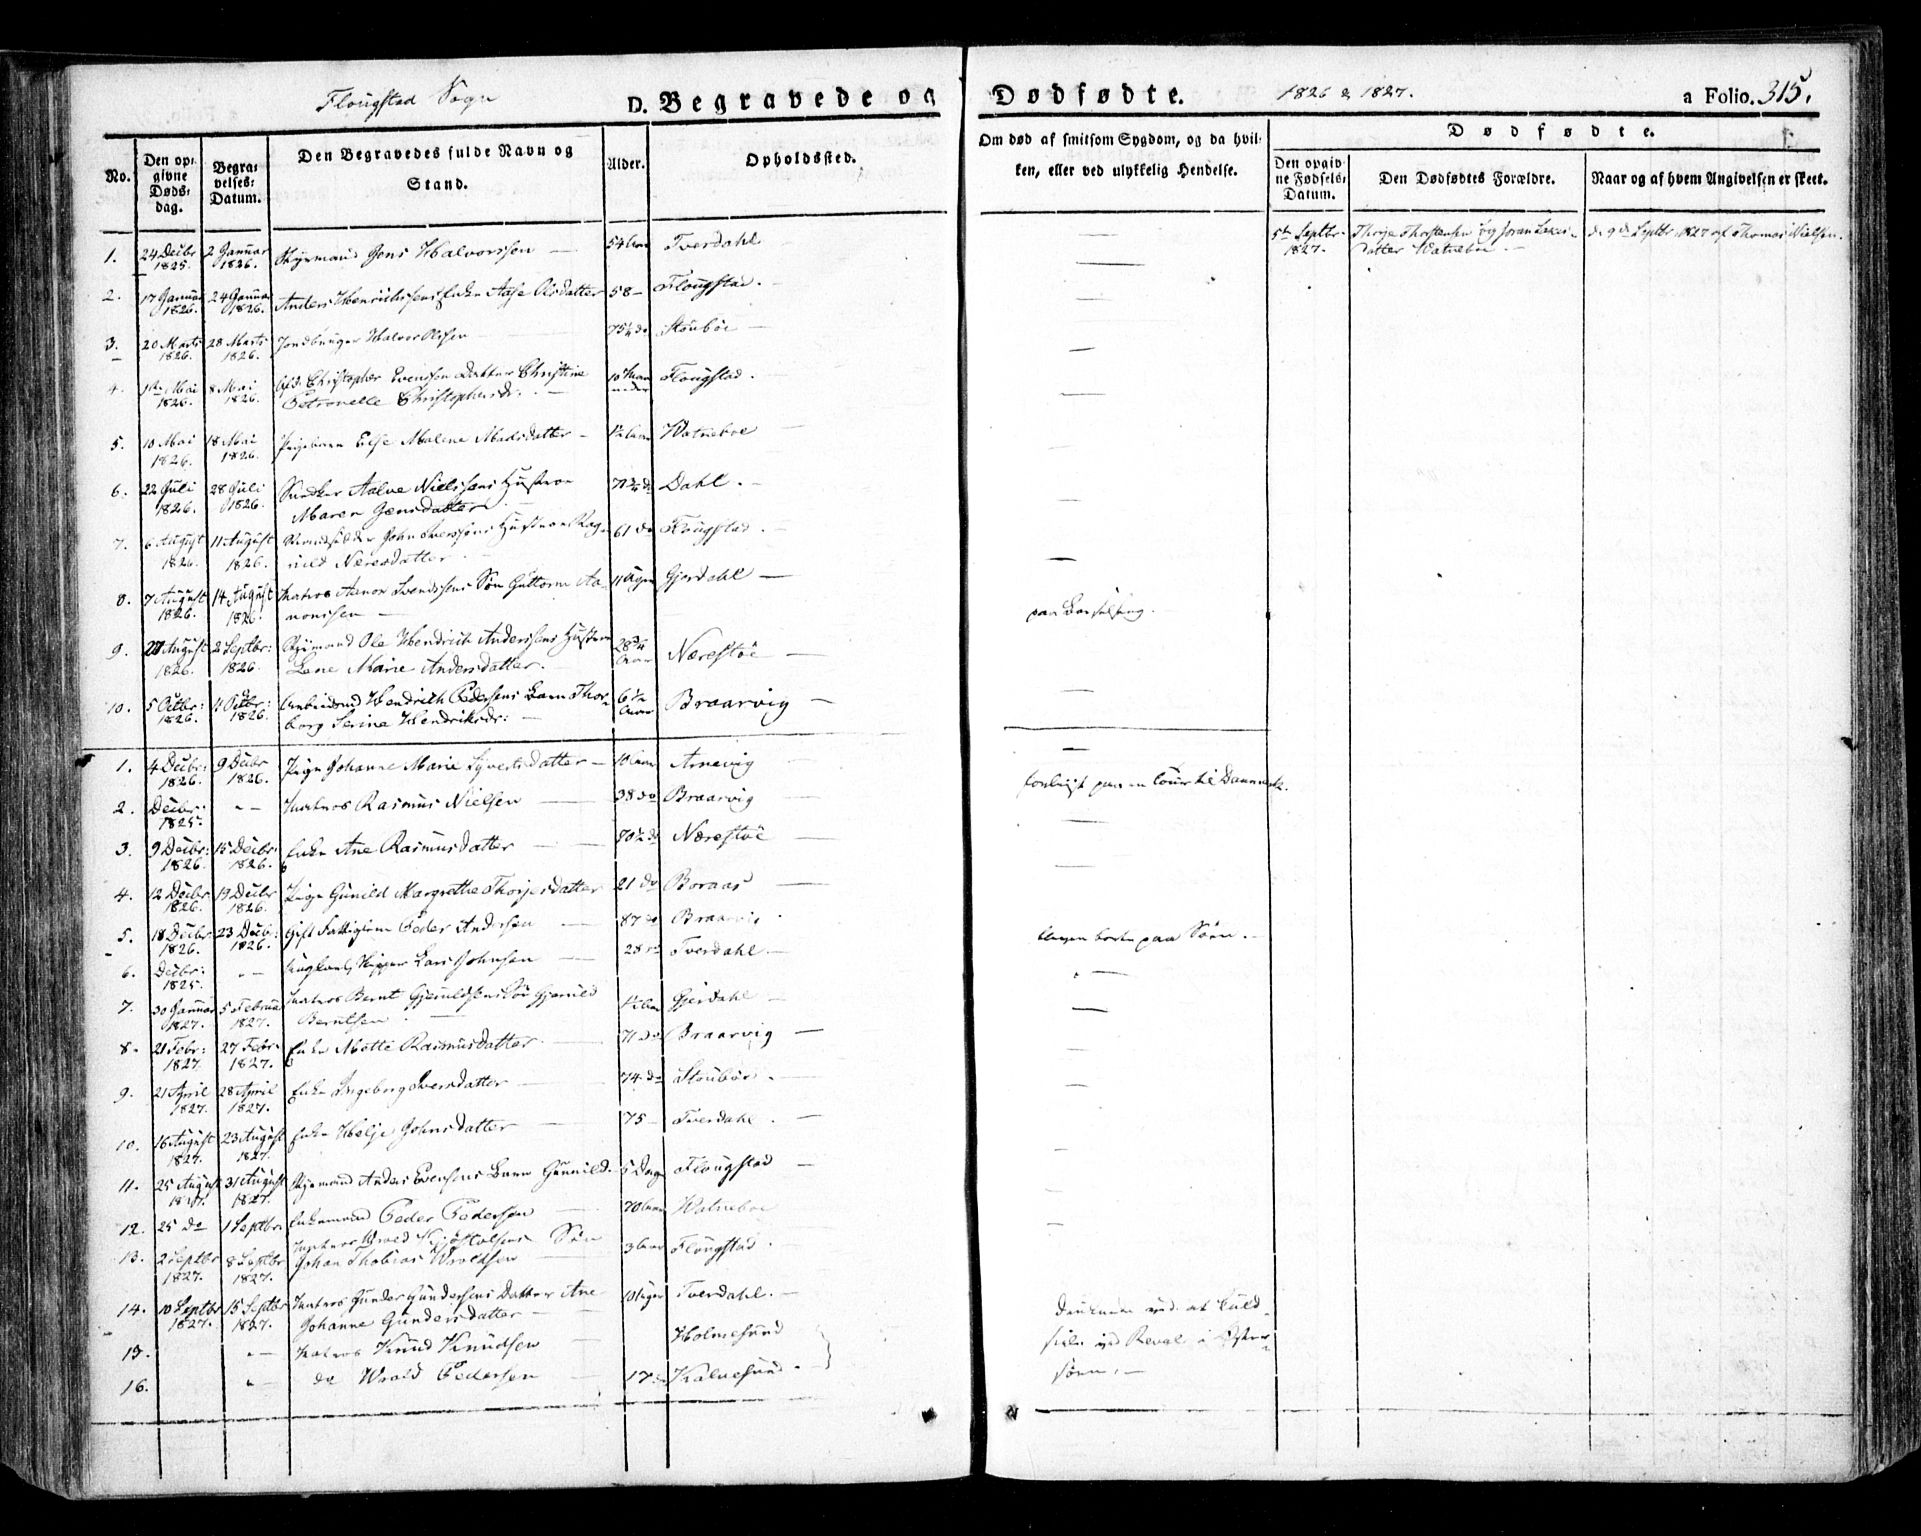 Flougstad Sogn
D. Begravede og Dødfødte. 1826 & 1827. a Folio. 315.
No.
Den opgivne Døds-dag.
Begravelses-Datum.
Den Begravedes fulde Navn og Stand.
Alder.
Opholdssted.
Om død af smitsom Sygdom, og da hvilken, eller ved ulykkelig Hendelse.
Dødfødte.
Den opgivne Fødsels-Datum.
Den Dødfødtes Forældre.
Naar og af hvem Angivelsen er skeet.
1. 24 Decbr 1825. 2 Januar 1826. Jens Halvorssen 54 Tverdahl
5te Septbr 1827. Watneboe d. 9de Septbr 1827 af Thomas Nielsen.
2. 17 Januar 1826. 24 Januar 1826. Anders Henrichssens Enke Aase Olsdatter 58 Flougstad.
3. 20 Marts 1826. 28 Marts 1826. Halvor Olssen 75 1/4 do Stoubøe
4. 1ste Mai 1826. 8 Mai 1826. Christopher Evenssen Datter Christine
Petronelle Christophersdr. 10 Maaneder Flougstad.
5. 10 Mai 1826. 18 Mai 1826. Pigebarn Else Malene Madsdatter Watneboe
6. 22 Juli 1826. 28 Juli 1826. Aalve Nielssens Hustrue
Maren Jensdatter Dahl.
7. 6 August 1826. 11 August 1826. John Iverssens Hustrue Ragnild Næresdatter 61 do Flougstad.
8. 7 August 1826. 14 August 1826. Matros Aanon Svendssens Søn Guttorm Aanonssen 11 Uger Gjerdahl
paa Barselseng.
9. 27 August 1826. 2 Septbr: 1826. Ole Hendrich Anderssens Hustrue
Lene Marie Andersdatter. 28 3/4 Aar Nærestøe
10. 5 Octbr: 1826. 11 Octbr: 1826. Hendrich Pedersens Barn Thorborg Serine Hendriksdr: 6 1/2 Aar Braarvig
1. 4 Decbr: 1826. 9 Decbr 1826. Pige Johanne Marie Syvertsdatter 10 Aar Arnevig
2. Decbr: 1825. "- Matros Rasmus Nielsen 38 do Braarvig
forliist paa en Tour til Danmark.
3. 9 Decbr: 1826. 15 Decbr: 1826. Enke Ane Rasmusdatter 80 1/2 do Nærestøe
4. 12 Decbr 1826. 19 Decbr 1826. Pige Gunild Margrethe Thorjesdatter 21 do Boraas
5. 18 Decbr 1826. 23 Decb: 1826. Gift Peder Andersen 87 do Braarvig
6. Decbr: 1825. "- Skipper Lars Johnsen 28 do Tverdahl
borte paa Søen.
7. 30 Januar 1827. 5 Februar 1827. Matros Bernt Gjeruldsens Søn Gjeruld
Berntsen Gjerdahl
8. 21 Febr: 1827. 27 Febr. 1827. Enke Mette Rasmusdatter 71 do Braarvig
9. 21 April 1827. 28 April 1827. Enke Ingeborg Iversdatter 74 do Stoubøe.
10. 16 August 1827. 23 August 1827. Enke Helje Johnsdatter 75 Tverdahl.
11. 25 August 1827. 31 August 1827. Anders Evensens Barn Gunnild 5 Dage Flougstad
12. 25 do 1 Septbr: Enkemand Peder Pedersen 70 Aar Watneboe
13. 2 Septbr 1827. 8 Septbr 1827. Matros Wrold Søn
Johan Thobias Wroldsen 3 Aar Flougstad.
14. 10 Septbr 1827. 15 Septbr 1827. Matros Gunder Gundersens Datter Ane
Johanne Gundersdatter 10 Uger Tverdahl.
15. "- Matros Knud Knudsen Holmesund
16. "- do Wrold Pedersen 17 do Kalvesund.
ved at
ved Reval i Østersøen.